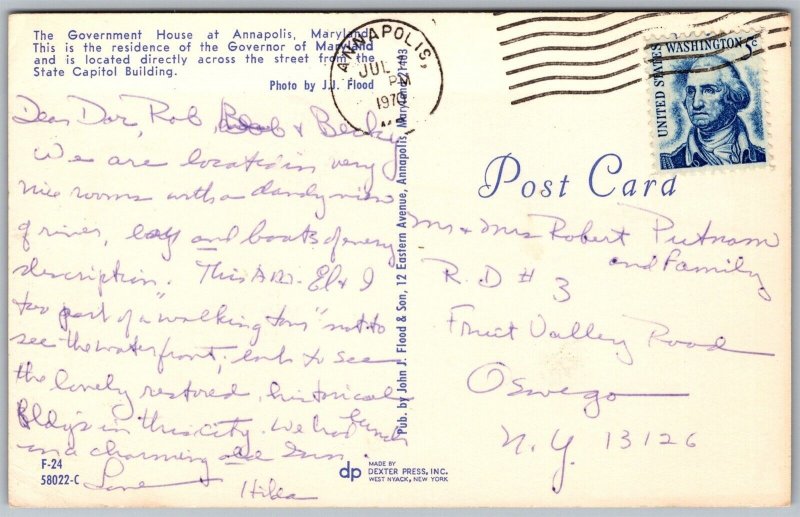 The Government House at Annapolis, Maryland.
This is the residence of the Governor of Maryland
and is located directly across the street from the
State Capitol Building.
Photo by J.J. Flood
Dear Dor, Rob, Bob & Becky
We are located in very
nice rooms with a dandy view
of river, bay and boats of every
description. This A.M. El & I
too part of a "walking tour" not to
see the waterfront, but to see
the lovely restored, historical
Bldgs in this city. We had lunch
in a charming old Inn.
Love Hilda
F-24
58022-C
Pub. by John J. Flood & Son, 12 Eastern Avenue, Annapolis, Maryland 21403
dp MADE BY
DEXTER PRESS, INC.
WEST NYACK, NEW YORK
ANNAPOLIS,
JUL
PM
1970
UNITED STATES
WASHINGTON 5c
Post Card
Mr & Mrs Robert Putnam
and Family
R. D # 3
Fruit Valley Road
Oswego
N.Y. 13126